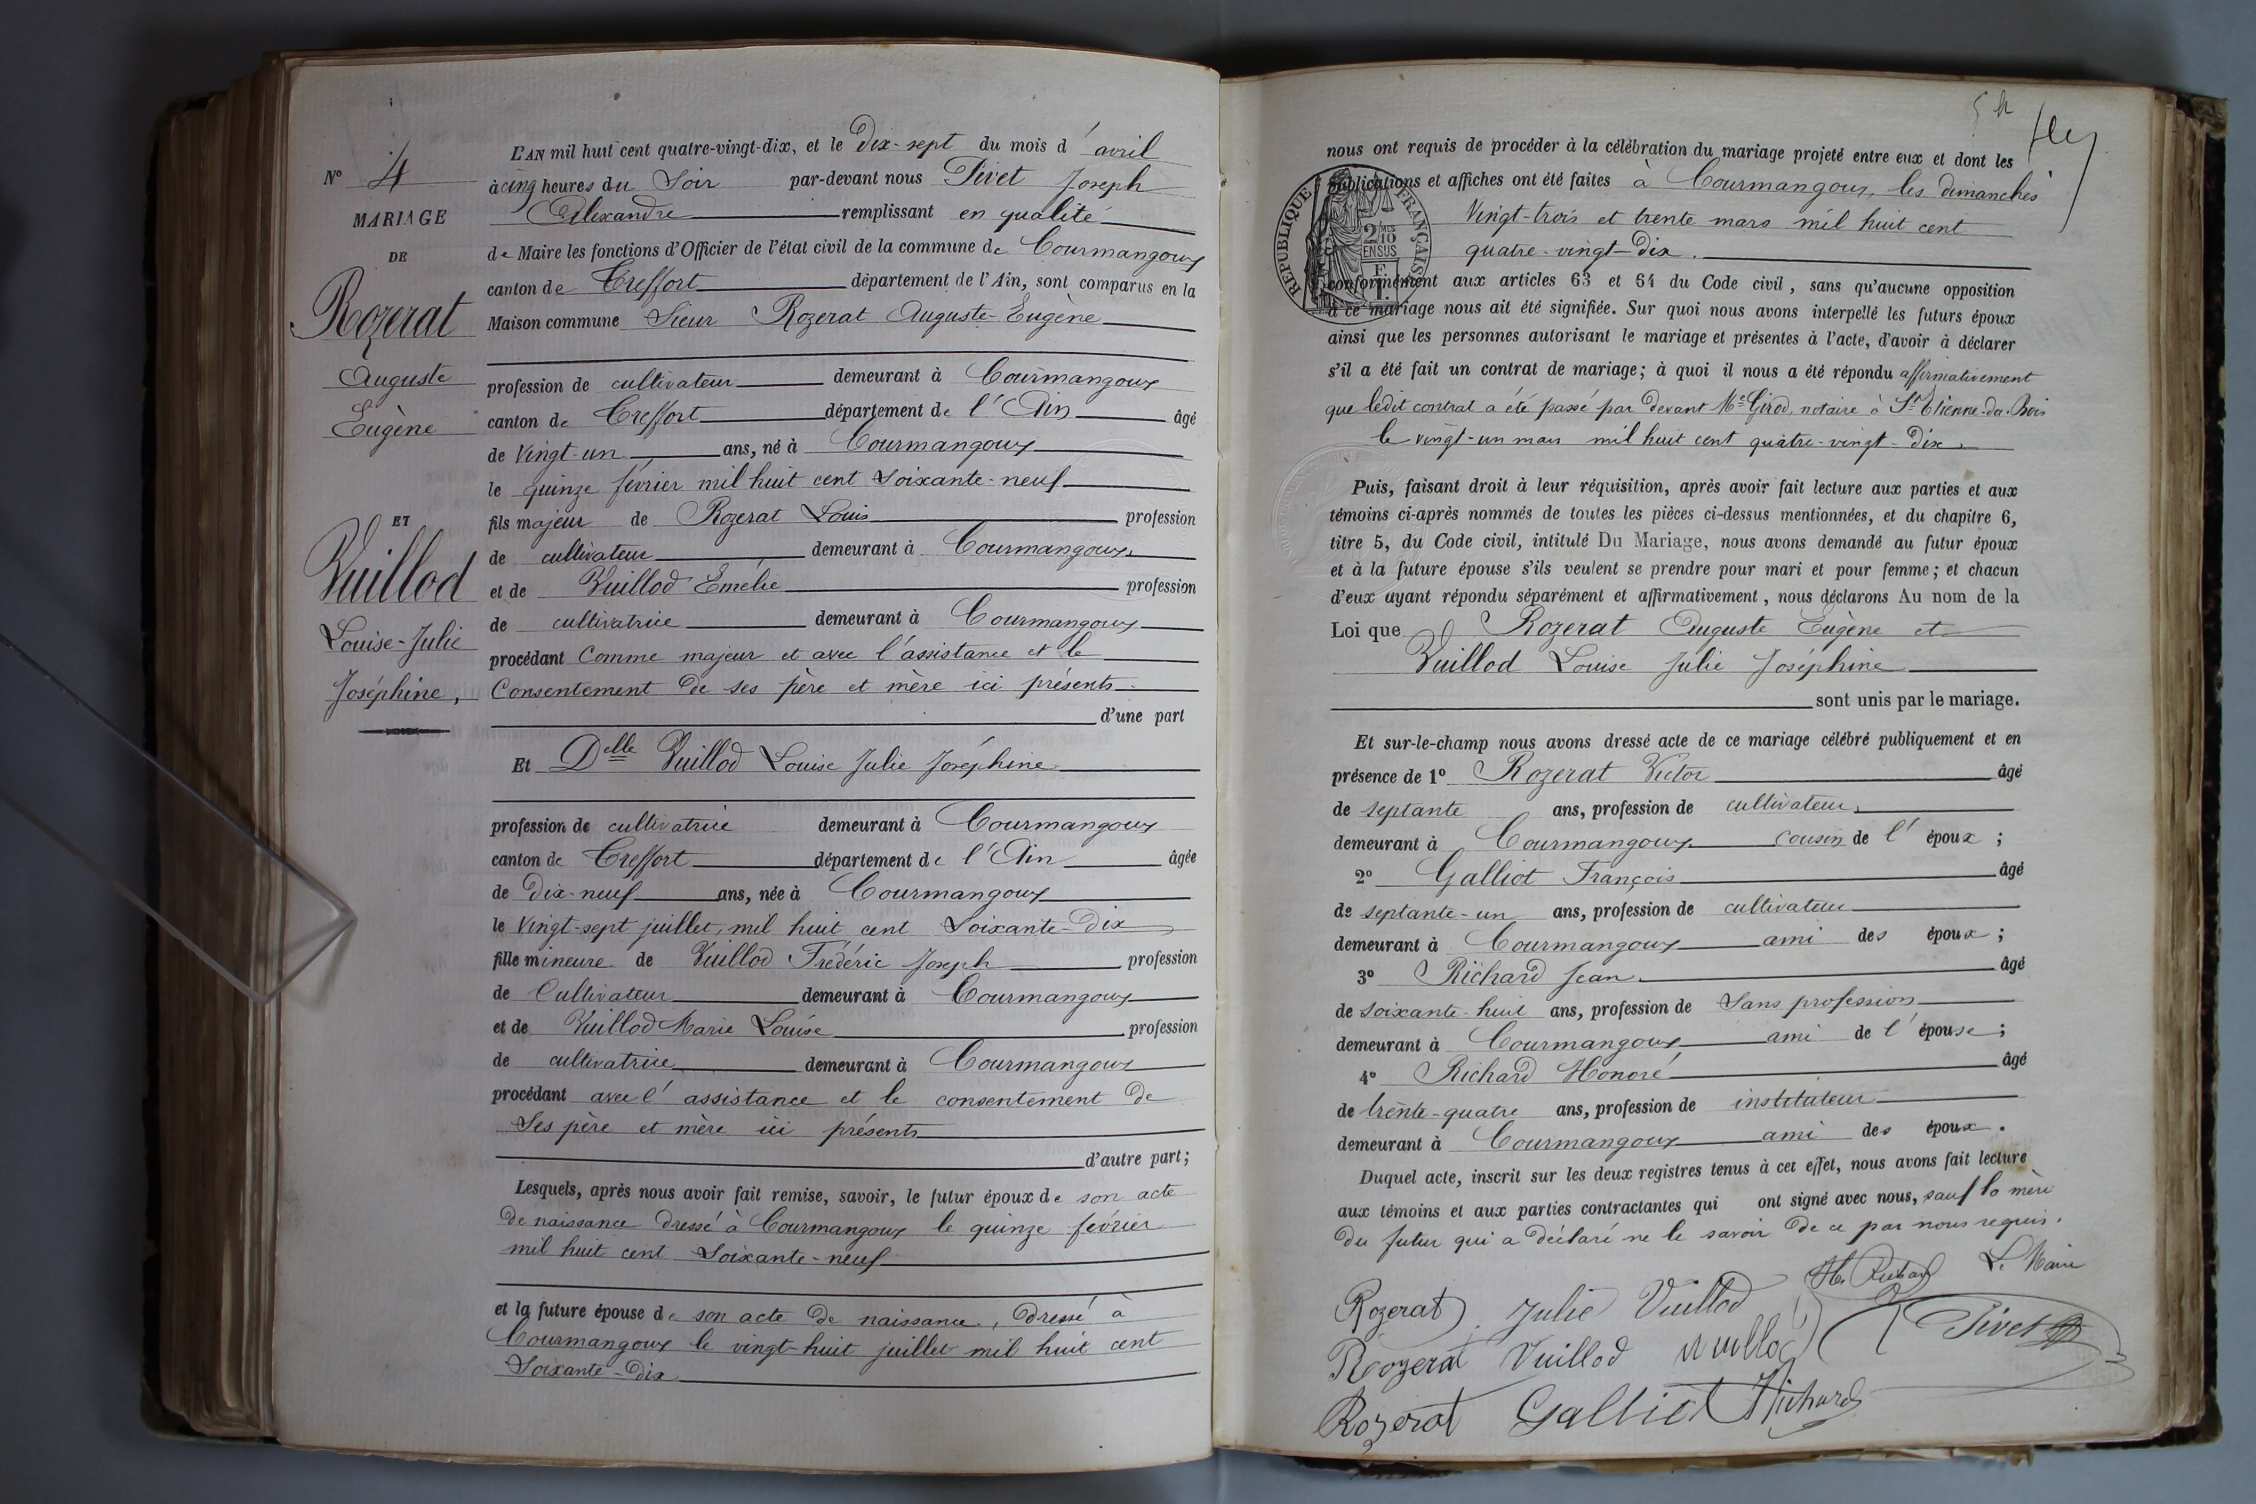 N° 4
MARIAGE
DE
Rozerat
Auguste
Eugène
ET
Vuillod
Louise-Julie
Joséphine,
L'AN mil huit cent quatre-vingt-dix, et le Dix-sept du mois d'avril
à cinq heures du Soir par-devant nous Pivet Joseph
Alexandre remplissant en qualité
de Maire les fonctions d'Officier de l'état civil de la commune de Courmangoux
canton de Treffort département de l'Ain, sont comparus en la
Maison commune Sieur Rozerat Auguste-Eugène
profession de cultivateur demeurant à Courmangoux
canton de Treffort département de l'Ain âgé
de Vingt-un ans, né à Courmangoux
le quinze février mil huit cent soixante-neuf
fils majeur de Rozerat Louis profession
de cultivateur demeurant à Courmangoux,
et de Vuillod Emélie profession
de cultivatrice demeurant à Courmangoux
procédant comme majeur et avec l'assistance et le
Consentement de ses père et mère ici présents.
d'une part
Et Delle Vuillod Louise Julie Joséphine
profession de cultivatrice demeurant à Courmangoux
canton de Treffort département de l'Ain âgée
de Dix-neuf ans, née à Courmangoux
le vingt-sept juillet, mil huit cent soixante-Dix
fille mineure de Vuillod Frédéric Joseph profession
de Cultivateur demeurant à Courmangoux
et de Vuillod Marie Louise profession
de cultivatrice demeurant à Courmangoux
procédant avec l'assistance et le consentement de
Ses père et mère ici présents
d'autre part;
Lesquels, après nous avoir fait remise, savoir, le futur époux de son acte
de naissance dressé à Courmangoux le quinze février
mil huit cent soixante-neuf
et la future épouse de son acte de naissance, dressé à
Courmangoux le vingt-huit juillet mil huit cent
soixante-Dix
nous ont requis de procéder à la célébration du mariage projeté entre eux et dont les
publications et affiches ont été faites à Courmangoux, les dimanches
Vingt-trois et trente mars mil huit cent
quatre-vingt-Dix.
conformément aux articles 63 et 64 du Code civil, sans qu'aucune opposition
à ce mariage nous ait été signifiée. Sur quoi nous avons interpellé les futurs époux
ainsi que les personnes autorisant le mariage et présentes à l'acte, d'avoir à déclarer
s'il a été fait un contrat de mariage; à quoi il nous a été répondu affirmativement
que ledit contrat a été passé par devant Me Girod, notaire à St Etienne-du-Bois
le vingt-un mars mil huit cent quatre-vingt-Dix.
RÉPUBLIQUE FRANÇAISE
2 /10 EN SUS
Puis, faisant droit à leur réquisition, après avoir fait lecture aux parties et aux
témoins ci-après nommés de toutes les pièces ci-dessus mentionnées, et du chapitre 6,
titre 5, du Code civil, intitulé Du Mariage, nous avons demandé au futur époux
et à la future épouse s'ils veulent se prendre pour mari et pour femme; et chacun
d'eux ayant répondu séparément et affirmativement, nous déclarons Au nom de la
Loi que Rozerat Auguste Eugène et
Vuillod Louise Julie Joséphine
sont unis par le mariage.
Et sur-le-champ nous avons dressé acte de ce mariage célébré publiquement et en
présence de 1° Rozerat Victor âgé
de septante ans, profession de cultivateur,
demeurant à Courmangoux cousin de l'époux;
2° Galliot François âgé
de septante-un ans, profession de cultivateur
demeurant à Courmangoux ami des époux;
3° Richard Jean âgé
de soixante-huit ans, profession de Sans profession
demeurant à Courmangoux ami de l'épouse;
4° Richard Honoré âgé
de trente-quatre ans, profession de instituteur
demeurant à Courmangoux ami des époux.
Duquel acte, inscrit sur les deux registres tenus à cet effet, nous avons fait lecture
aux témoins et aux parties contractantes qui ont signé avec nous, sauf la mère
du futur qui a déclaré ne le savoir de ce par nous requis.
Rozerat Julie Vuillod Hé Richard Le Maire
Rozerat Vuillod Vuillod Pivet
Rozerat Galliot Richard